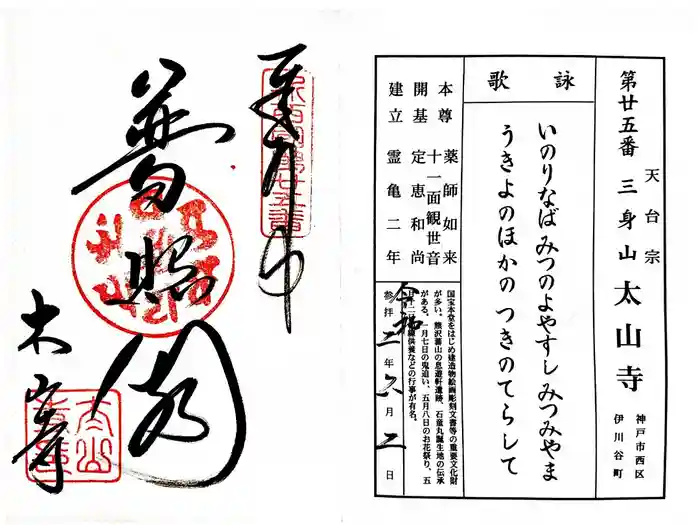 第廿五番 天台宗 三身山 太山寺
神戸市西区
伊川谷町
詠歌
いのりなば みつのよやすし みつみやま
うきよのほかの つきのてらして
本尊 薬師如来
十一面観世音
開基 定恵和尚
建立 霊亀二年
国宝本堂をはじめ建造物絵画彫刻文書等の重要文化財
が多い。熊沢蕃山の息遊軒遺跡、石童丸誕生地の伝承
がある。一月七日の鬼追い、五月八日のお花祭り、五
供養などの行事が有名。
令和
参拝 二年 六月 二日
奉拝
新西国第廿五番
普照閣
太山寺